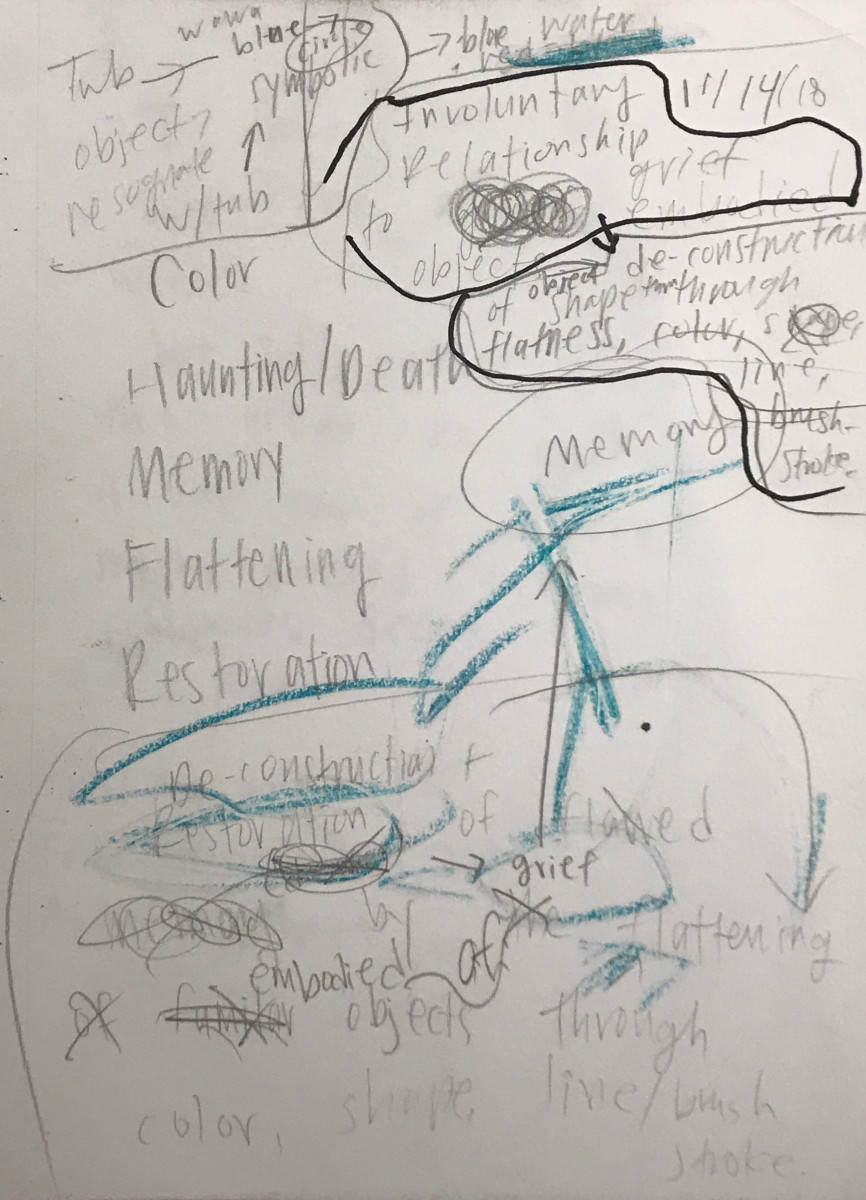 wawa
Tub → blue → circle
symbolic
object
resognate
w/tub
→ blue water
red
11/14/18
Involuntary
Relationship grief
to embodied
objects
de-construction
of object
shape through
flatness, color,
line,
brush-
stroke.
Color
Haunting/Death
Memory
Flattening
Restoration
Memory
De-construction +
Restoration of flawed
→ grief
by the flattening
embodied
of objects through
color, shape, line/brush
stroke.